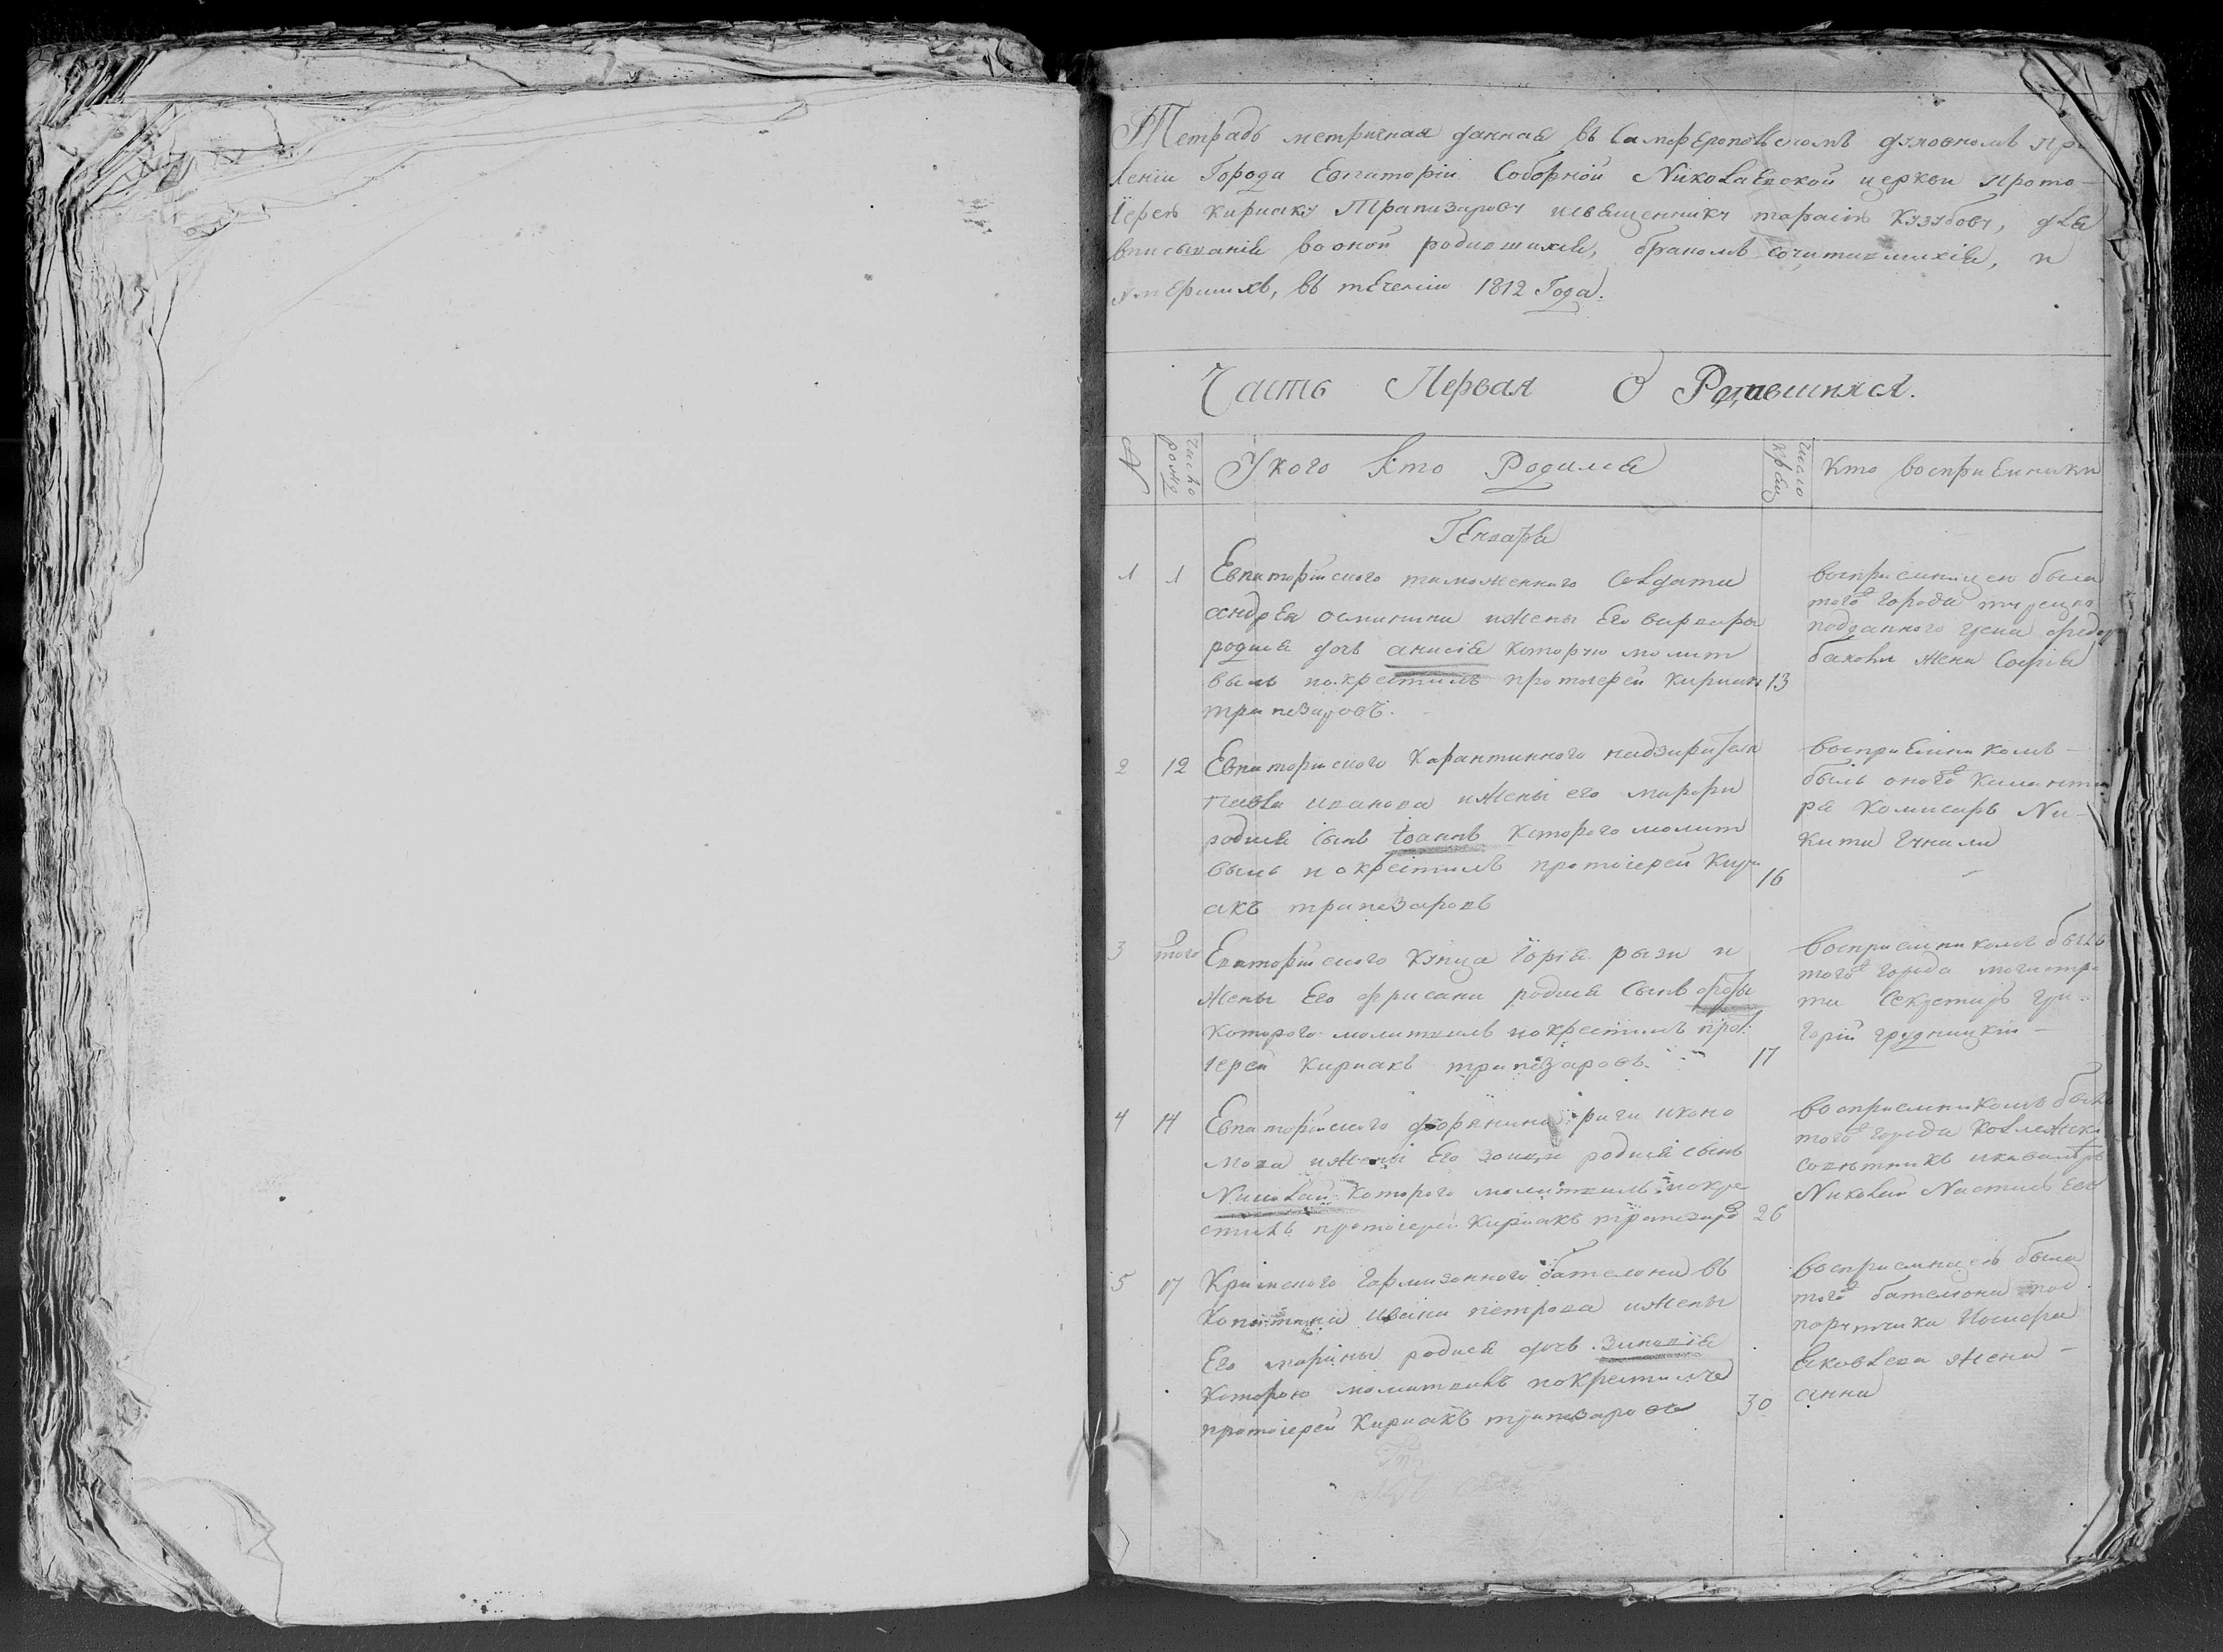 Тетрадь метричная данная въ Симферопольскомъ духовномъ пра
лении Города Евпаторiи Соборной Николаевской церкви прото-
iерею кириаку Трапизарову исвященнику тарасiю Кузубову, для
вписыванiя во оной родившихся, бракомъ сочитавшихся, и
умершихъ, въ теченiи 1812 Года.
Часть Первая О Родившихся.
№
число рожд
Укого Кто Родился
число крещ
Кто восприемники
Генваря
1 1 Евпаторiйского таможенного Солдата
андрея осминина ижены Его варвары
родися дочь анисiя которую молит
выль покрестилъ протоiерей кириакъ 13
трапезаровъ.
восприемницею была
тогоже города турецко
подданного грека федор
жена Софiя
2 12 Евпаторiйского Карантинного надзирателя
Павла иванова ижены его марфы
родися Сынъ iоаннъ которого молит
выль покрестилъ протоiерей Кири 16
акъ трапезаровъ
восприемникомъ-
былъ оногоже
Комисаръ Ни-
кита
3 того Евпаторiйского купца Юрiя рази и
жены Его родися Сынъ
Которого молитвиль покрестилъ про
iерей Кириакъ трапезаровъ 17
восприемникомъ былъ
тогоже города магистра
та Секретарь гри-
горiй грудницкiй-
4 14 Евпаторiйского дворянина риги иконо
мова ижены Его зоици родися сынъ
Николай которого молитвиль покре
стилъ протоiерей Кириакъ трапезаро 26
восприемникомъ былъ
тогоже города Колежски
советникъ икавалеръ
Николай
5 17 Кримского гарнизонного баталiона въ
Капитана ивана петрова ижены
Его марины родися дочь зиновiя
Которою молитвивъ покрестилъ
протоiерей Кириакъ трапезаровъ 30
восприемницею была
тогоже баталiона под
порутчика
Яковлева жена-
анна